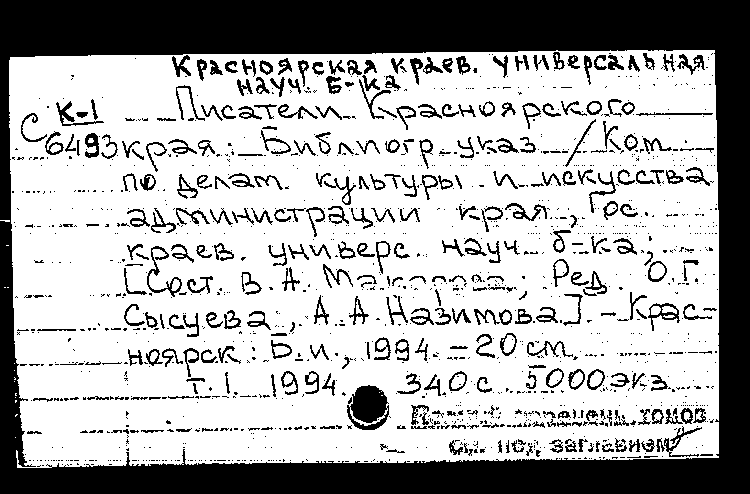 Красноярская краев. универсальная
науч. б-ка
К-1 Писатели Красноярского
С 6493 края: Библиогр. указ / Ком
по делам культуры и искусства
администрации края, Гос.
краев. универс. науч б-ка;
[Сост. В. А. Макарова; Ред. О. Г.
Сысуева, А. А. Назимова]. - Крас-
ноярск: Б. и., 1994. - 20 см.
т. 1. 1994. 340 с. 5000 экз.
перечень томов
см. под заглавием